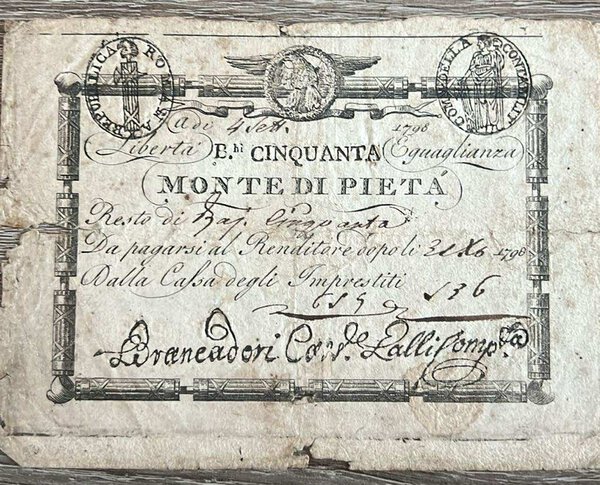 REPUBBLICA ROMANA
COM. DELLA CONTABILITÀ
Adi 4 Set. 1798
Libertà B.hi CINQUANTA Eguaglianza
MONTE DI PIETÁ
Resto di Baj. Cinquanta
Da pagarsi al Renditore dopo li 31 Xb 1798
Dalla Cassa degli Imprestiti
136
Brancadori Lalli Comp.ta